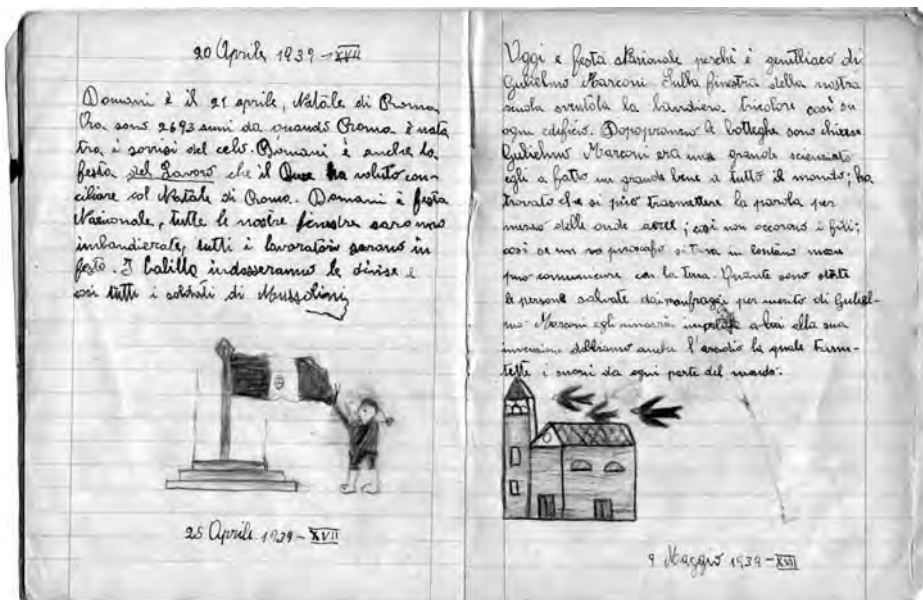 20 Aprile 1939 - XVII
Domani è il 21 aprile, Natale di Roma,
Ora sono 2693 anni da quando Roma è nata
tra i sorrisi del celo. Domani è anche la
festa del Lavoro che il Duce ha voluto con-
ciliare col Natale di Roma. Domani è festa
Nazionale, tutte le nostre finestre saranno
imbandierate, tutti i lavoratori saranno in
festa. I balilla indosseranno le divise e
così tutti i soldati di Mussolini
25 Aprile 1939 - XVII
Oggi e festa Nasionale perchè è genitliaco di
Gulielmo Marconi. Sulla finestra della nostra
scuola sventola la bandiera tricolore così su
ogni edificio. Dopopranzo le botteghe sono chiuse
Gulielmo Marconi era una grande scienziato
egli a fatto un grande bene a tutto il mondo; ha
trovato che si può trasmettere la parola per
mezzo delle onde aeree; così non occorono i fili;
così se un va procafo si trova in lontano mare
puo comunicare con la terra. Quante sono state
le persone salvate dai naufraggi per merito di Guliel-
mo Marconi egli rimarrà a lui alla sua
invenzione dobbiamo anche l'aradio la quale trasm-
tette i suoni da ogni parte del mondo.
9 Maggio 1939 - XVII